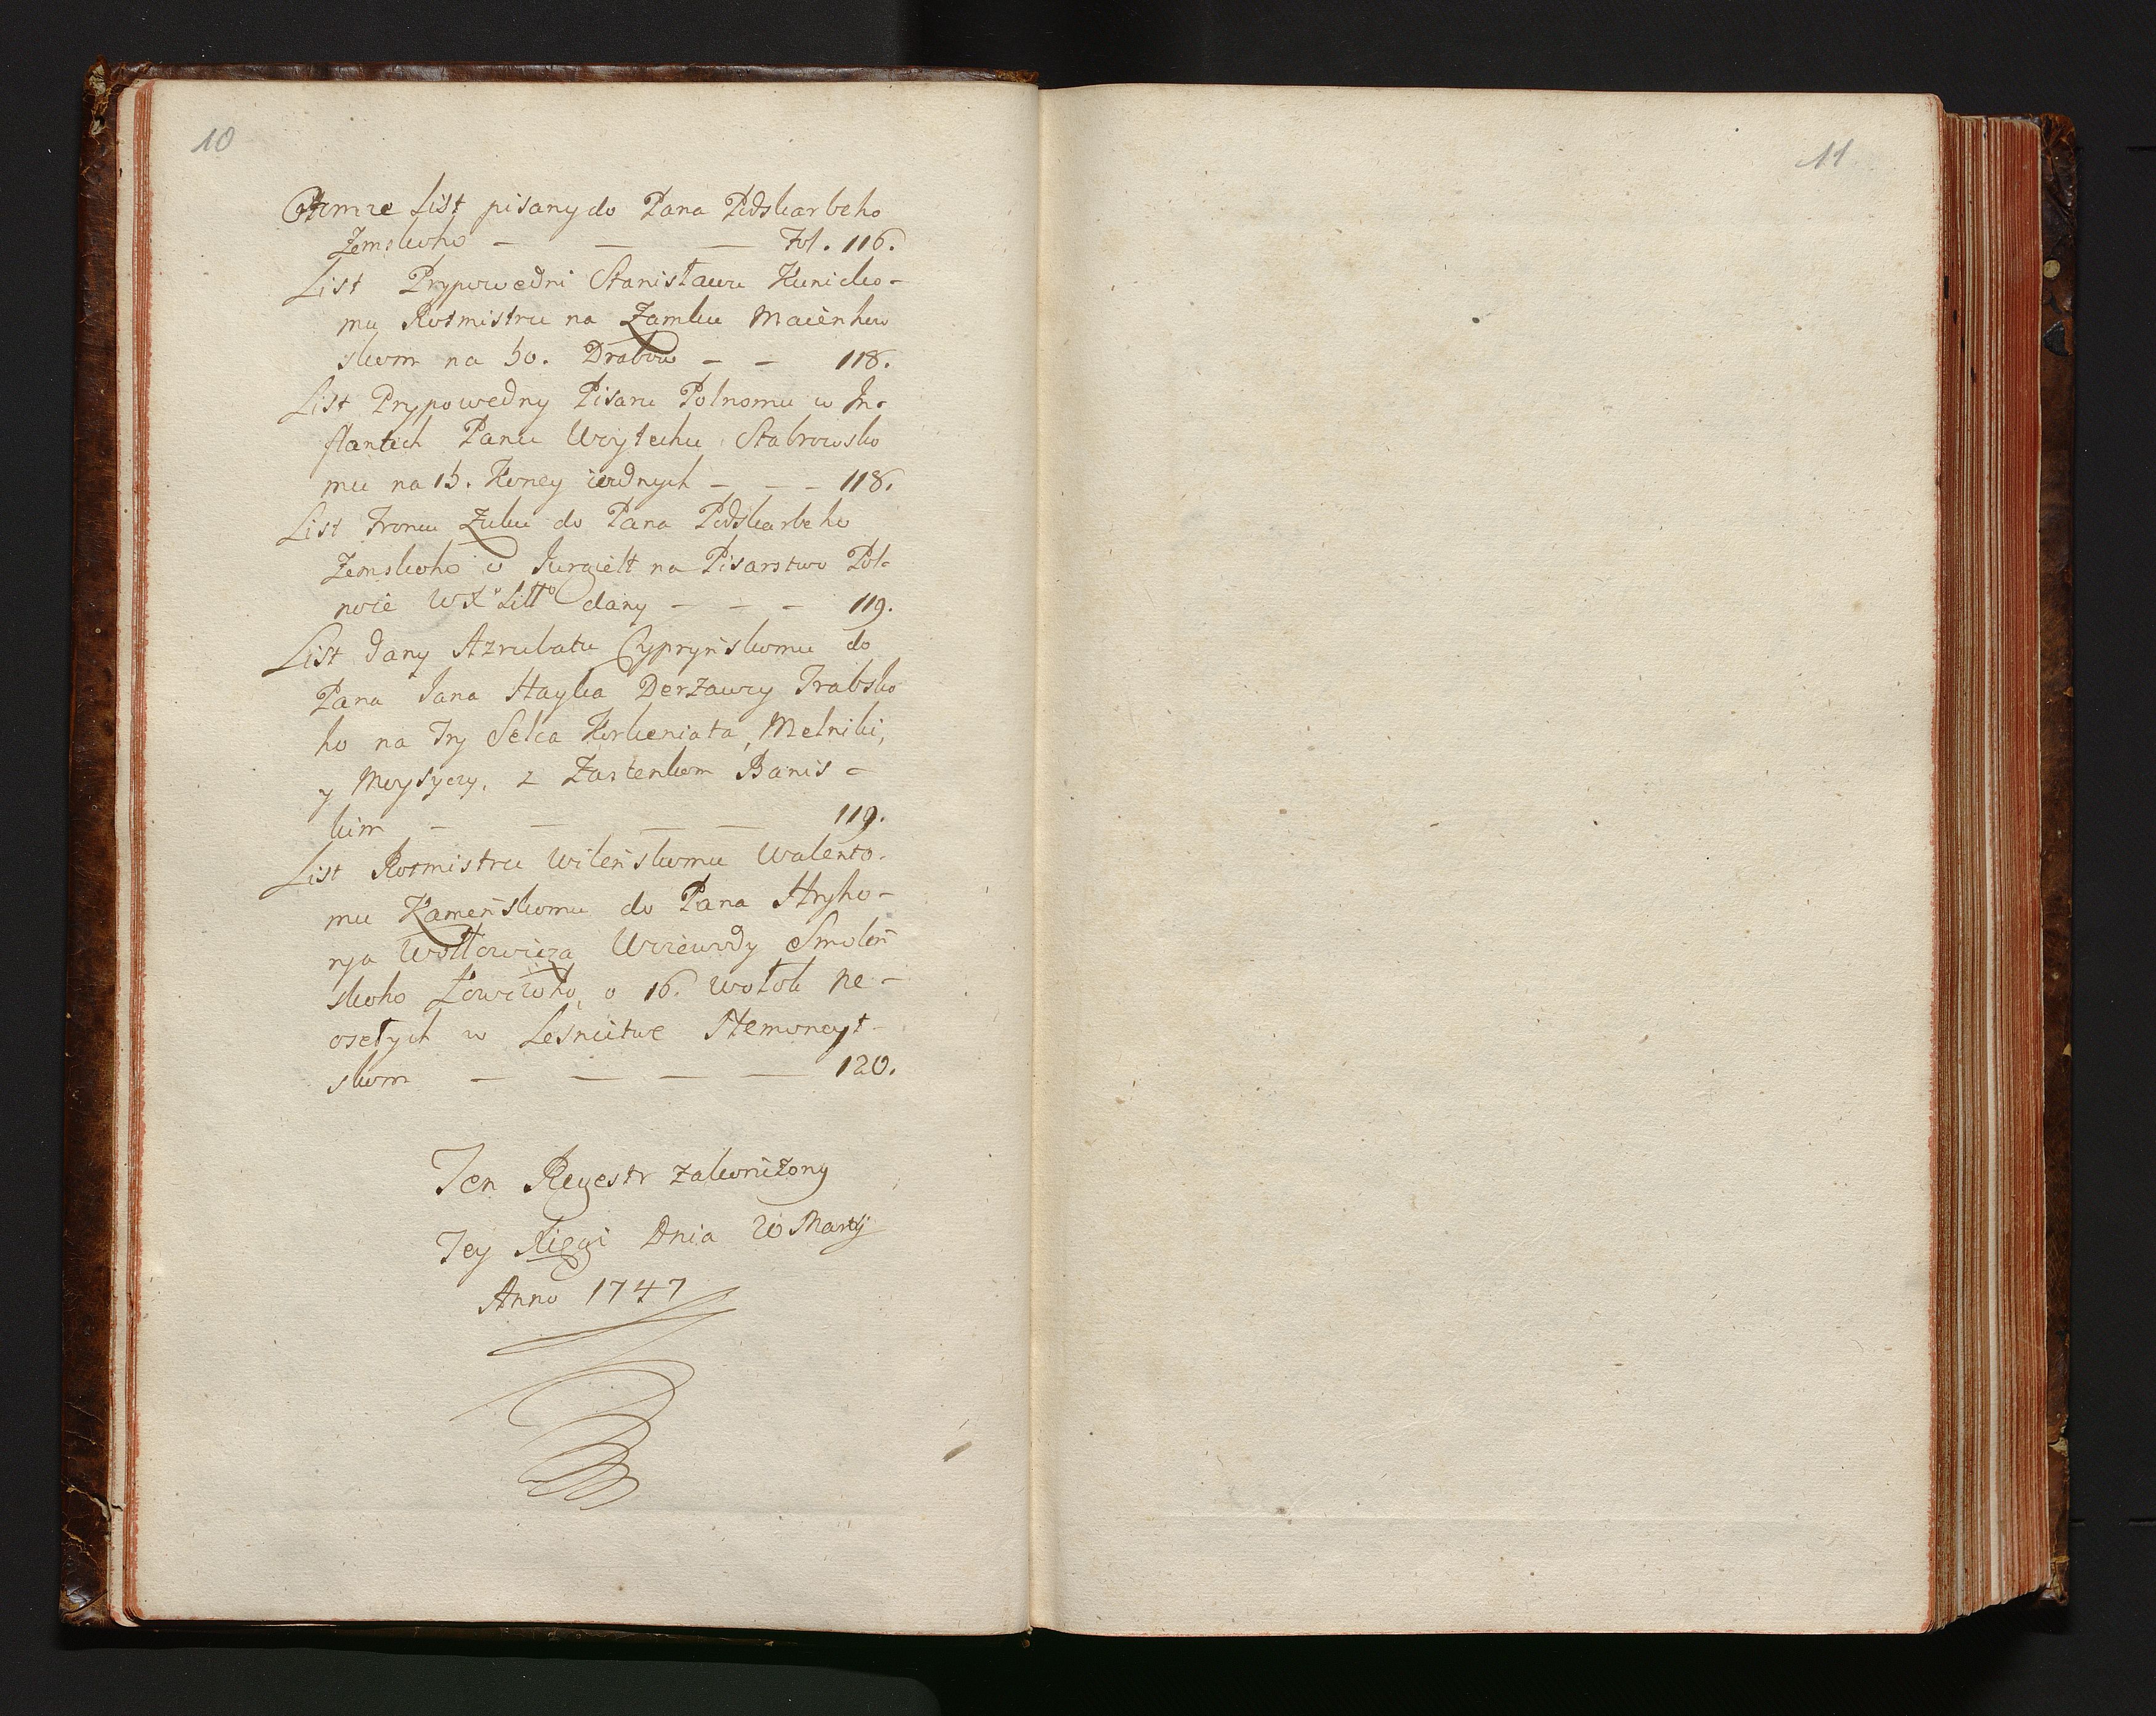 10
Otomze List pisany do Pana Podskarbeho
Zemskoho — — — Fol. 116.
List Prypowedni Stanisławu Kunicko-
mu Rotmistru na Zamku Maienhow
skom na 50. Drabow — — 118.
List Prypowedny Pisaru Polnomu w In-
flantech Panu Woytechu Stabrowsko
mu na 15. Koney iezdnych — — — 118.
List Fronu Zuku do Pana Podskarbeho
Zemskoho o Jurgielt na Pisarstwo Pol-
noie WX Litto dany — — — 119.
List dany Azrubatu Cypryńskomu do
Pana Jana Hayka Derżawcy Trabsko
ho na Try Selca Korkeniata, Melniki,
y Moysyczy, z Zastenkom Banis-
kim — — — — 119.
List Rotmistru Wileńskomu Walento-
mu Kameńskomu do Pana Hryho-
rya Wołłowicza Woiewody Smoleń
skoho Łowczoho, o 16. wołok ne-
osełych w Lesnictwe Nemoneyt-
skom — — — — 120.
Ten Regestr zakoniczony
Tey Xięgi Dnia 20 Marty
Anno 1747
11